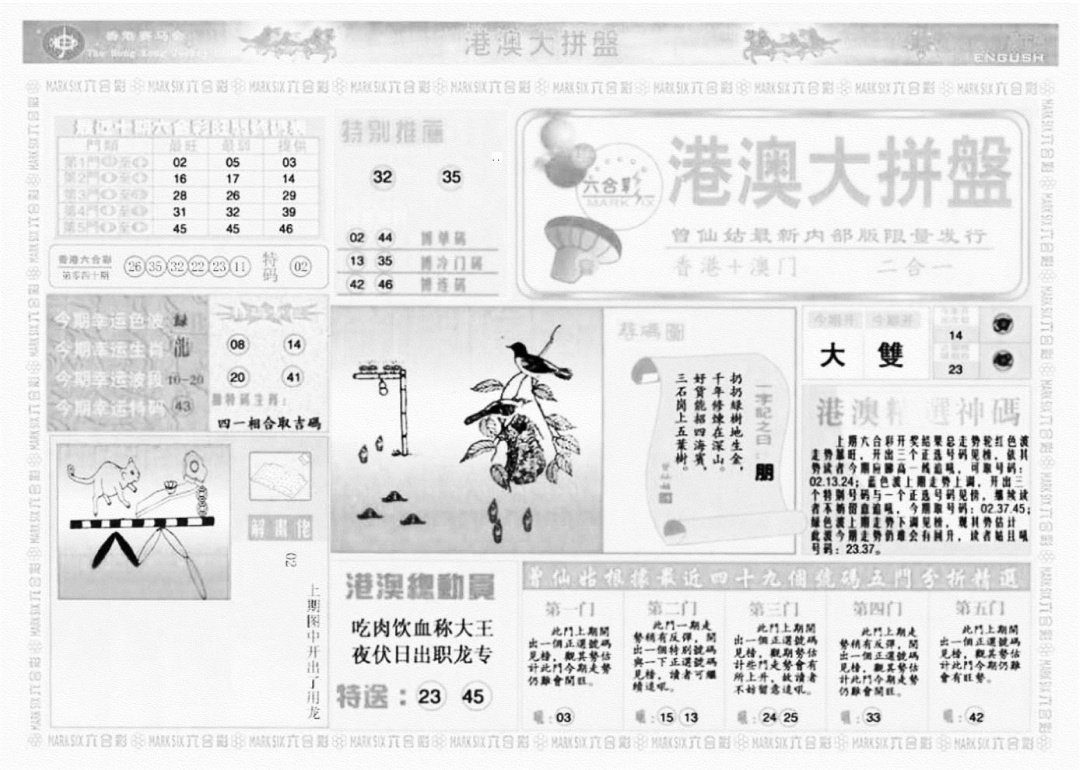 香港赛马会
The Hong Kong Jockey
港澳大拼盤
ENGLISH
MARK SIX 六合彩
最近十期六合彩旺弱號碼表
門類 最旺 最弱 提供
第1門 至 02 05 03
第2門 至 16 17 14
第3門 至 28 26 29
第4門 至 31 32 39
第5門 至 45 45 46
香港六合彩
第零四十期
26 35 32 22 23 11
特码
02
特别推薦
32 35
02 44 博單码
13 35 博冷门码
42 46 博连码
六合彩
MARK SIX
港澳大拼盤
曾仙姑最新内部版限量发行
香港＋澳门 二合一
今期幸运色波 绿
今期幸运生肖 龍
今期幸运波段 10-20
今期幸运特码 43
08 14
20 41
特码生肖：
四一相合取吉碼
尋碼圖
一字記之曰：朋
扔扔綠樹地生金，
千年修煉在深山。
好貨能招四海賓，
三石崗上五葉樹。
曾仙姑
今期开 今期开
大 雙
14
23
港澳精選神碼
上期六合彩开奖结果总走势轮红色波
走势靠旺，开出三个正选号码见榜，依其
势读者今期应睇高一线追吼，可取号码：
02.13.24；蓝色波上期走势上调，开出三
个特别号码与一个正选号码见榜，继续读
者不妨留意追吼，今期取号码：02.37.45；
绿色波上期走势下调见榜，观其势估计
此波今期走势仍难会有回升，读者姑且吼
号码：23.37。
解畫佬
02
上期图中开出了用龙
港澳總動員
吃肉饮血称大王
夜伏日出职龙专
特送：23 45
曾仙姑根據最近四十九個號碼五門分析精選
第一门
此門上期開
出一個正選號碼
見榜，觀其勢估
計此門今期走勢
仍難會開旺。
吼：03
第二门
此門一期走
勢稍有反彈，開
出一個特別號碼
與一下正選號碼
見榜，讀者可繼
續追吼。
吼：15 13
第三门
此門上期開
出一個正選號碼
見榜，觀期勢估
計些門走勢會有
所上升，故讀者
不妨留意追吼。
吼：24 25
第四门
此門上期走
勢稍有反彈，開
出一個正選號碼
見榜，觀其勢估
計此門今期走勢
仍難會開旺。
吼：33
第五门
此門上期開
出一個正選號碼
見榜，觀其勢估
計此門今期仍難
會有旺勢。
吼：42